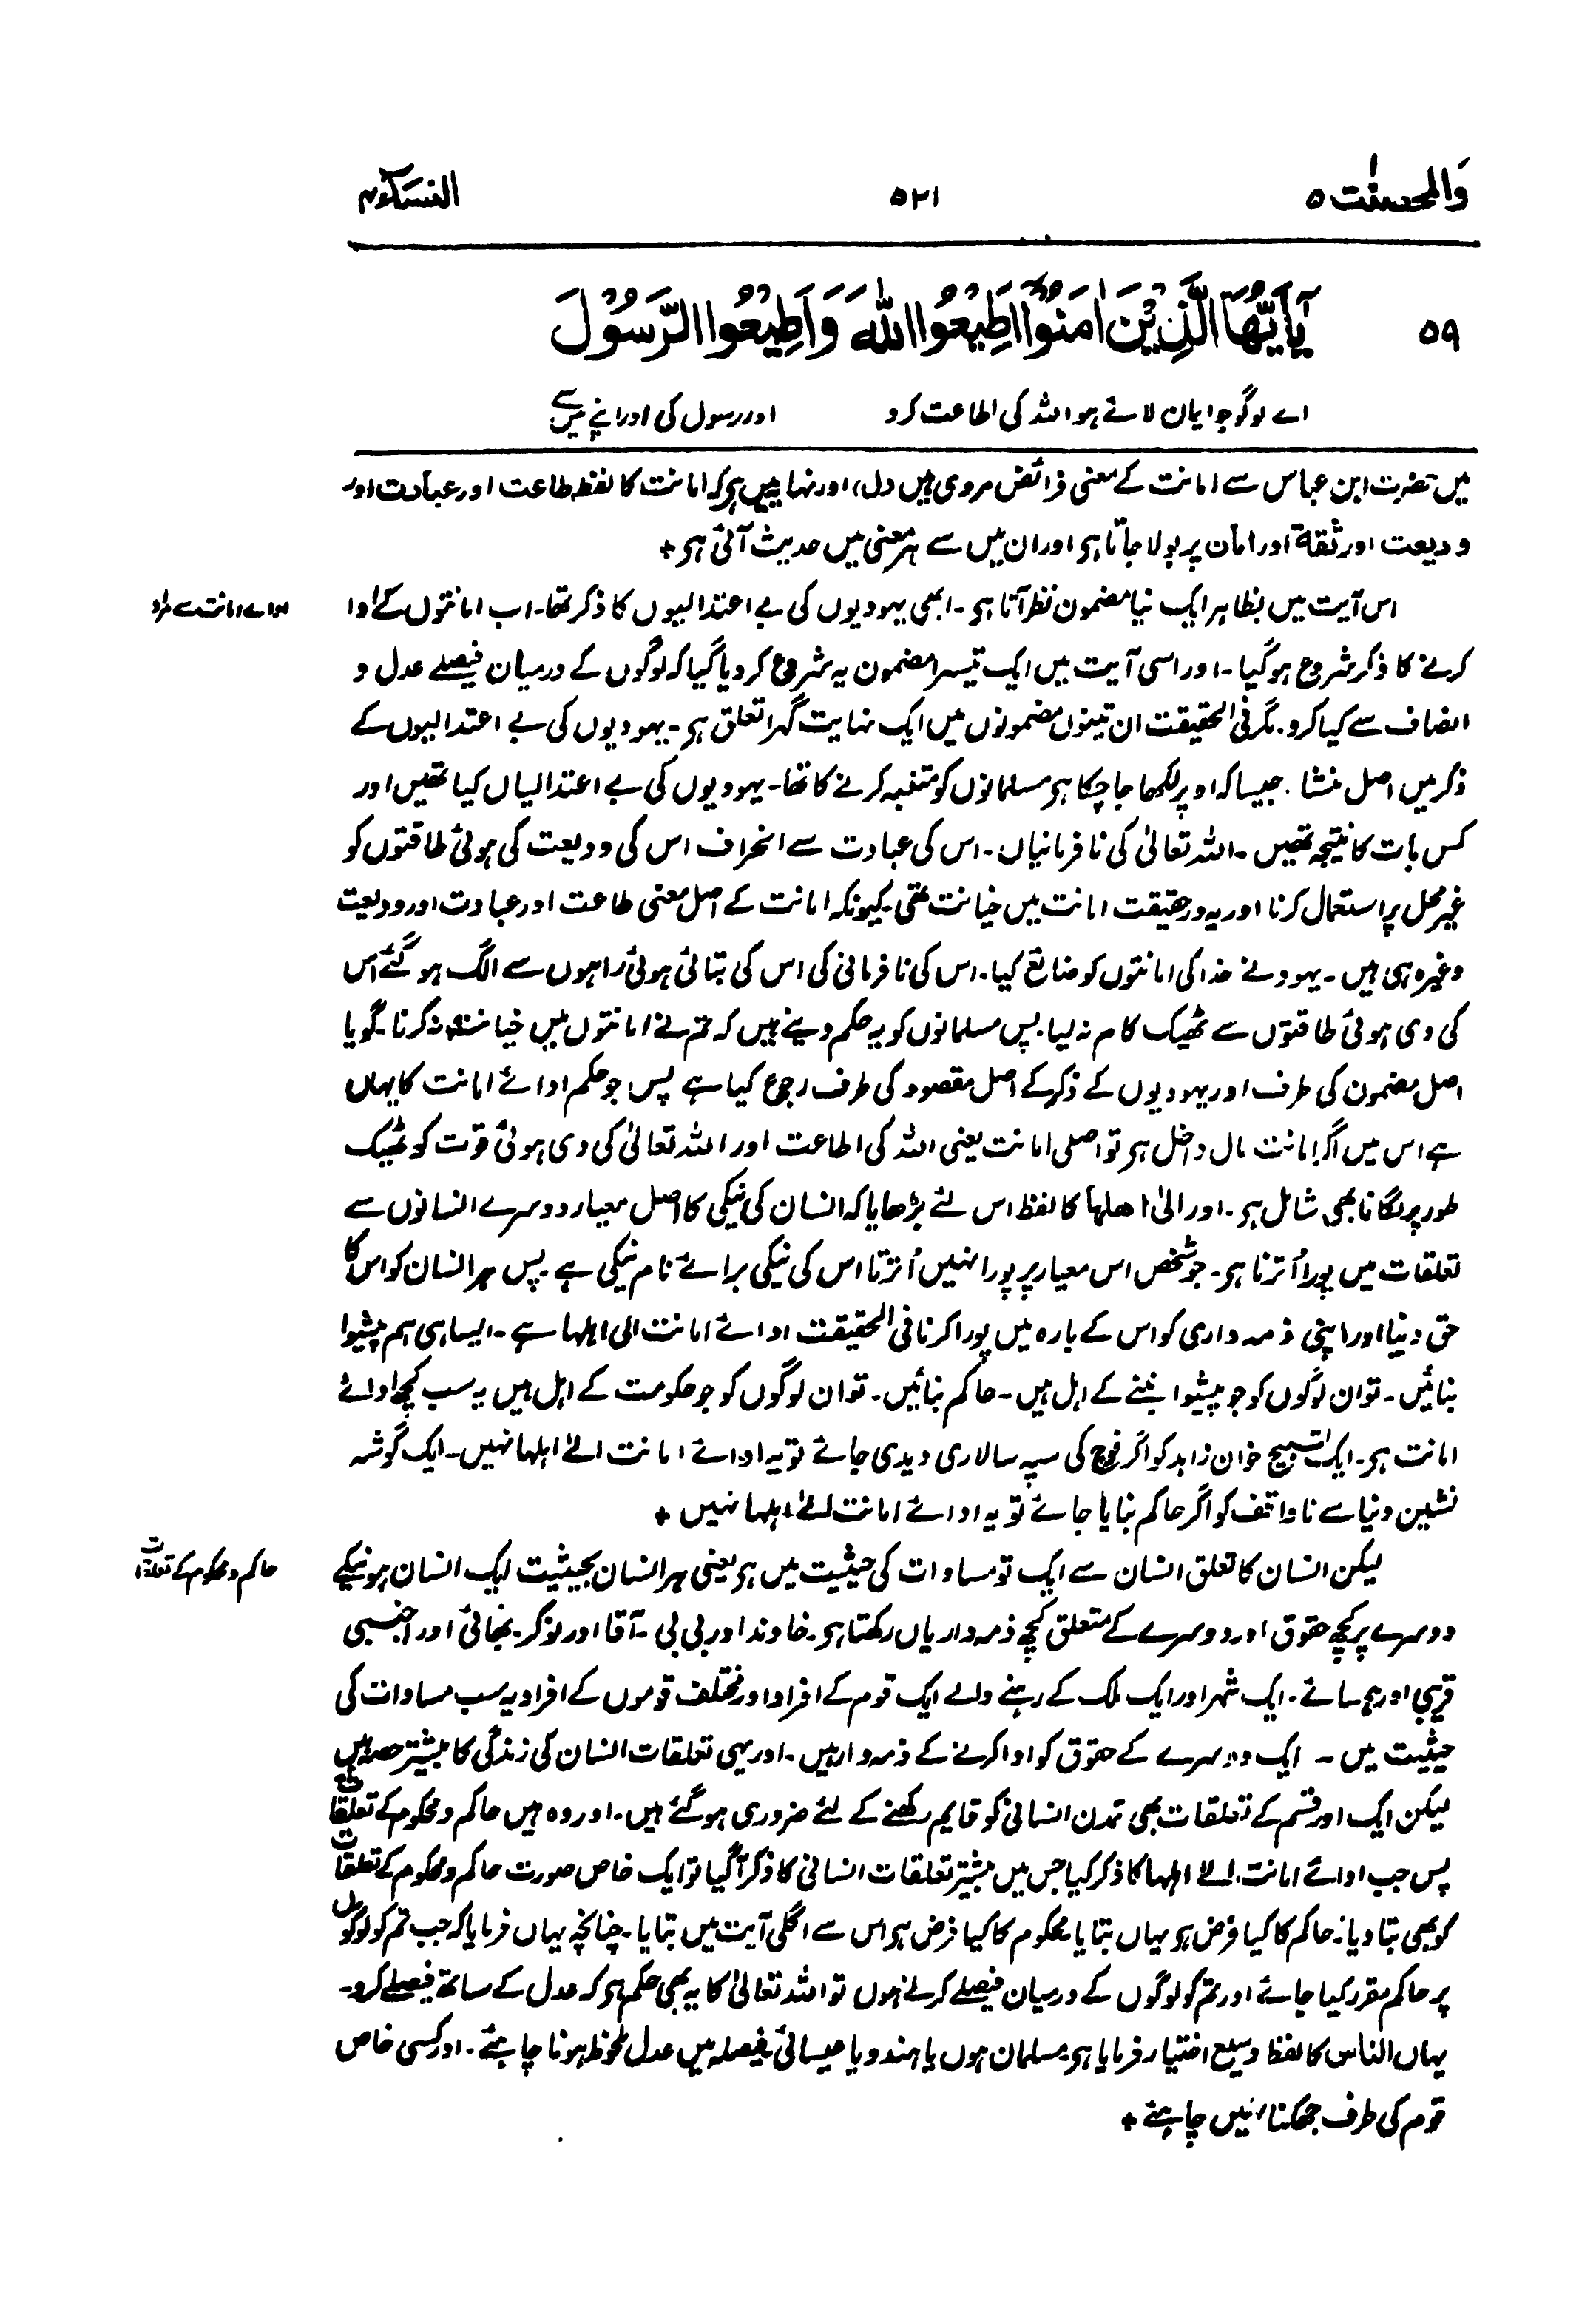 والمحصنٰت ۵
۵۲۱
النساء ۴
۵۹
يٰٓاَيُّهَا الَّذِيْنَ اٰمَنُوْٓا اَطِيْعُوا اللّٰهَ وَاَطِيْعُوا الرَّسُوْلَ
اے لوگو جو ایمان لائے ہو اللہ کی اطاعت کرو اور رسول کی اور اپنے میں سے
میں حضرت ابن عباس سے امانت کے معنی فرائض مروی ہیں (ل)، اور نہایہ میں ہر کہ امانت کا لفظ طاعت اور عبادت اور
ودیعت اور ثقۃ اور امان پر بولا جاتا ہر اور ان میں سے ہر معنی میں حدیث آئی ہر +
ادائے امانت سے مراد
اس آیت میں بظاہر ایک نیا مضمون نظر آتا ہر۔ ابھی یہودیوں کی بے اعتدالیوں کا ذکر تھا۔ اب امانتوں کے ادا
کرنے کا ذکر شروع ہو گیا۔ اور اسی آیت میں ایک تیسرا مضمون یہ شروع کر دیا گیا کہ لوگوں کے درمیان فیصلے عدل و
انصاف سے کیا کرو۔ مگر فی الحقیقت ان تینوں مضمونوں میں ایک نہایت گہرا تعلق ہر۔ یہودیوں کی بے اعتدالیوں کے
ذکر میں اصل منشا۔ جیسا کہ اوپر لکھا جا چکا ہر مسلمانوں کو متنبہ کرنے کا تھا۔ یہودیوں کی بے اعتدالیاں کیا تھیں اور
کس بات کا نتیجہ تھیں۔ اللہ تعالیٰ کی نافرمانیاں۔ اس کی عبادت سے انحراف اس کی ودیعت کی ہوئی طاقتوں کو
غیر محل پر استعمال کرنا اور یہ درحقیقت امانت میں خیانت تھی۔ کیونکہ امانت کے اصل معنی طاعت اور عبادت اور ودیعت
وغیرہ ہی ہیں۔ یہود نے خدا کی امانتوں کو ضائع کیا۔ اس کی نافرمانی کی اس کی بتائی ہوئی راہوں سے الگ ہو گئے اس
کی دی ہوئی طاقتوں سے ٹھیک کام نہ لیا۔ پس مسلمانوں کو یہ حکم دیتے ہیں کہ تم نے امانتوں میں خیانت نہ کرنا۔ گویا
اصل مضمون کی طرف اور یہودیوں کے ذکر کے اصل مقصود کی طرف رجوع کیا ہے پس جو حکم ادائے امانت کا یہاں
ہے اس میں اگر امانت مال داخل ہر تو اصلی امانت یعنی اللہ کی اطاعت اور اللہ تعالیٰ کی دی ہوئی قوت کو ٹھیک
طور پر لگانا بھی شامل ہر۔ اور الیٰ اھلہا کا لفظ اس لئے بڑھایا کہ انسان کی نیکی کا اصل معیار دوسرے انسانوں سے
تعلقات میں پورا اُترنا ہر۔ جو شخص اس معیار پر پورا نہیں اُترتا اس کی نیکی برائے نام نیکی ہے۔ پس ہر انسان کو اس کا
حق دینا اور اپنی ذمہ داری کو اس کے بارہ میں پورا کرنا فی الحقیقت ادائے امانت الی اہلہا ہے۔ ایسا ہی ہم پیشوا
بنائیں۔ تو ان لوگوں کو جو پیشوا بننے کے اہل ہیں۔ حاکم بنائیں۔ تو ان لوگوں کو جو حکومت کے اہل ہیں یہ سب کچھ ادائے
امانت ہر۔ ایک تسبیح خوان زاہد کو اگر فوج کی سپہ سالاری دیدی جائے تو یہ ادائے امانت الےٰ اہلہا نہیں۔ ایک گوشہ
نشین دنیا سے ناواقف کو اگر حاکم بنایا جائے تو یہ ادائے امانت الےٰ اہلہا نہیں +
حاکم و محکوم کے تعلقات
لیکن انسان کا تعلق انسان سے ایک تو مساوات کی حیثیت میں ہر یعنی ہر انسان بحیثیت ایک انسان ہونیکے
دوسرے پر کچھ حقوق اور دوسرے کے متعلق کچھ ذمہ داریاں رکھتا ہر۔ خاوند اور بی بی۔ آقا اور نوکر۔ بھائی اور اجنبی
قریبی اور ہمسائے۔ ایک شہر اور ایک ملک کے رہنے والے ایک قوم کے افراد اور مختلف قوموں کے افراد یہ سب مساوات کی
حیثیت میں۔ ایک دوسرے کے حقوق کو ادا کرنے کے ذمہ دار ہیں۔ اور یہی تعلقات انسان کی زندگی کا بیشتر حصہ ہیں
لیکن ایک اور قسم کے تعلقات بھی تمدن انسانی کو قایم رکھنے کے لئے ضروری ہو گئے ہیں۔ اور وہ ہیں حاکم و محکوم کے تعلقات
پس جب ادائے امانت الےٰ اہلہا کا ذکر کیا جس میں بیشتر تعلقات انسانی کا ذکر آ گیا تو ایک خاص صورت حاکم و محکوم کے تعلقات
کو بھی بتا دیا۔ حاکم کا کیا فرض ہر یہاں بتایا محکوم کا کیا فرض ہر اس سے اگلی آیت میں بتایا۔ چنانچہ یہاں فرمایا کہ جب تم کو لوگوں
پر حاکم مقرر کیا جائے اور تم کو لوگوں کے درمیان فیصلے کرنے ہوں تو اللہ تعالیٰ کا یہ بھی حکم ہر کہ عدل کے ساتھ فیصلے کرو۔
یہاں الناس کا لفظ وسیع اختیار فرمایا ہر۔ مسلمان ہوں یا ہندو یا عیسائی فیصلہ میں عدل ملحوظ ہونا چاہئے۔ اور کسی خاص
قوم کی طرف جھکنا نہیں چاہئے +